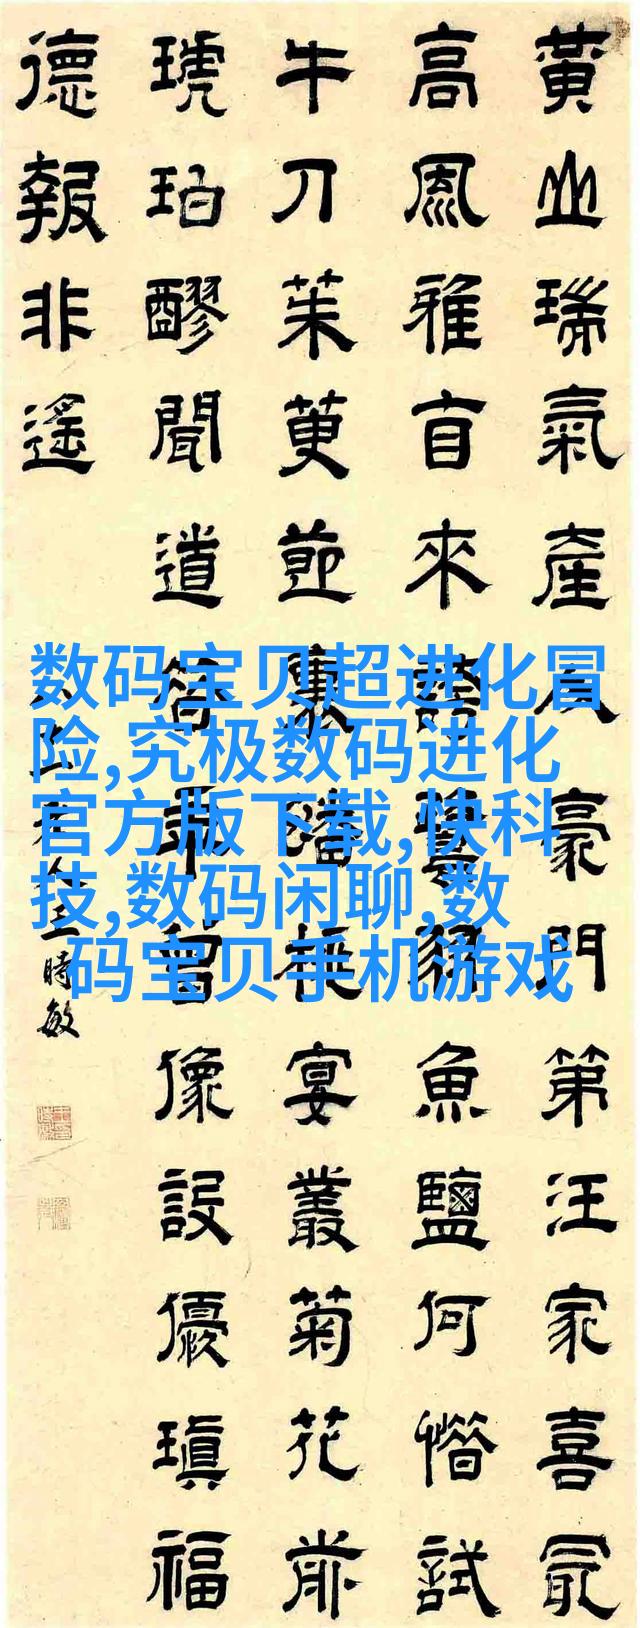 黃山瑞氣産人豪門第汪家喜冣
高風雅來魚鹽何惜試
牛刀茱萸節裏宴叢菊花前
琥珀醪聞道曾像設福
德報非遙
時敏
数码宝贝超进化冒
险,究极数码进化
官方版下载,快科
技,数码闲聊,数
码宝贝手机游戏